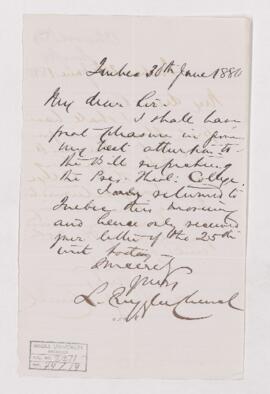 Quebec 30th June 1880
My dear Sir.
I shall have
great pleasure in giving
my best attention to
the Bill respecting
the Pres. Theol: College.
I only returned to
Quebec this morning
and hence only received
your letter of the 25th
inst today
Sincerely
yours
McGILL UNIVERSITY
ARCHIVES